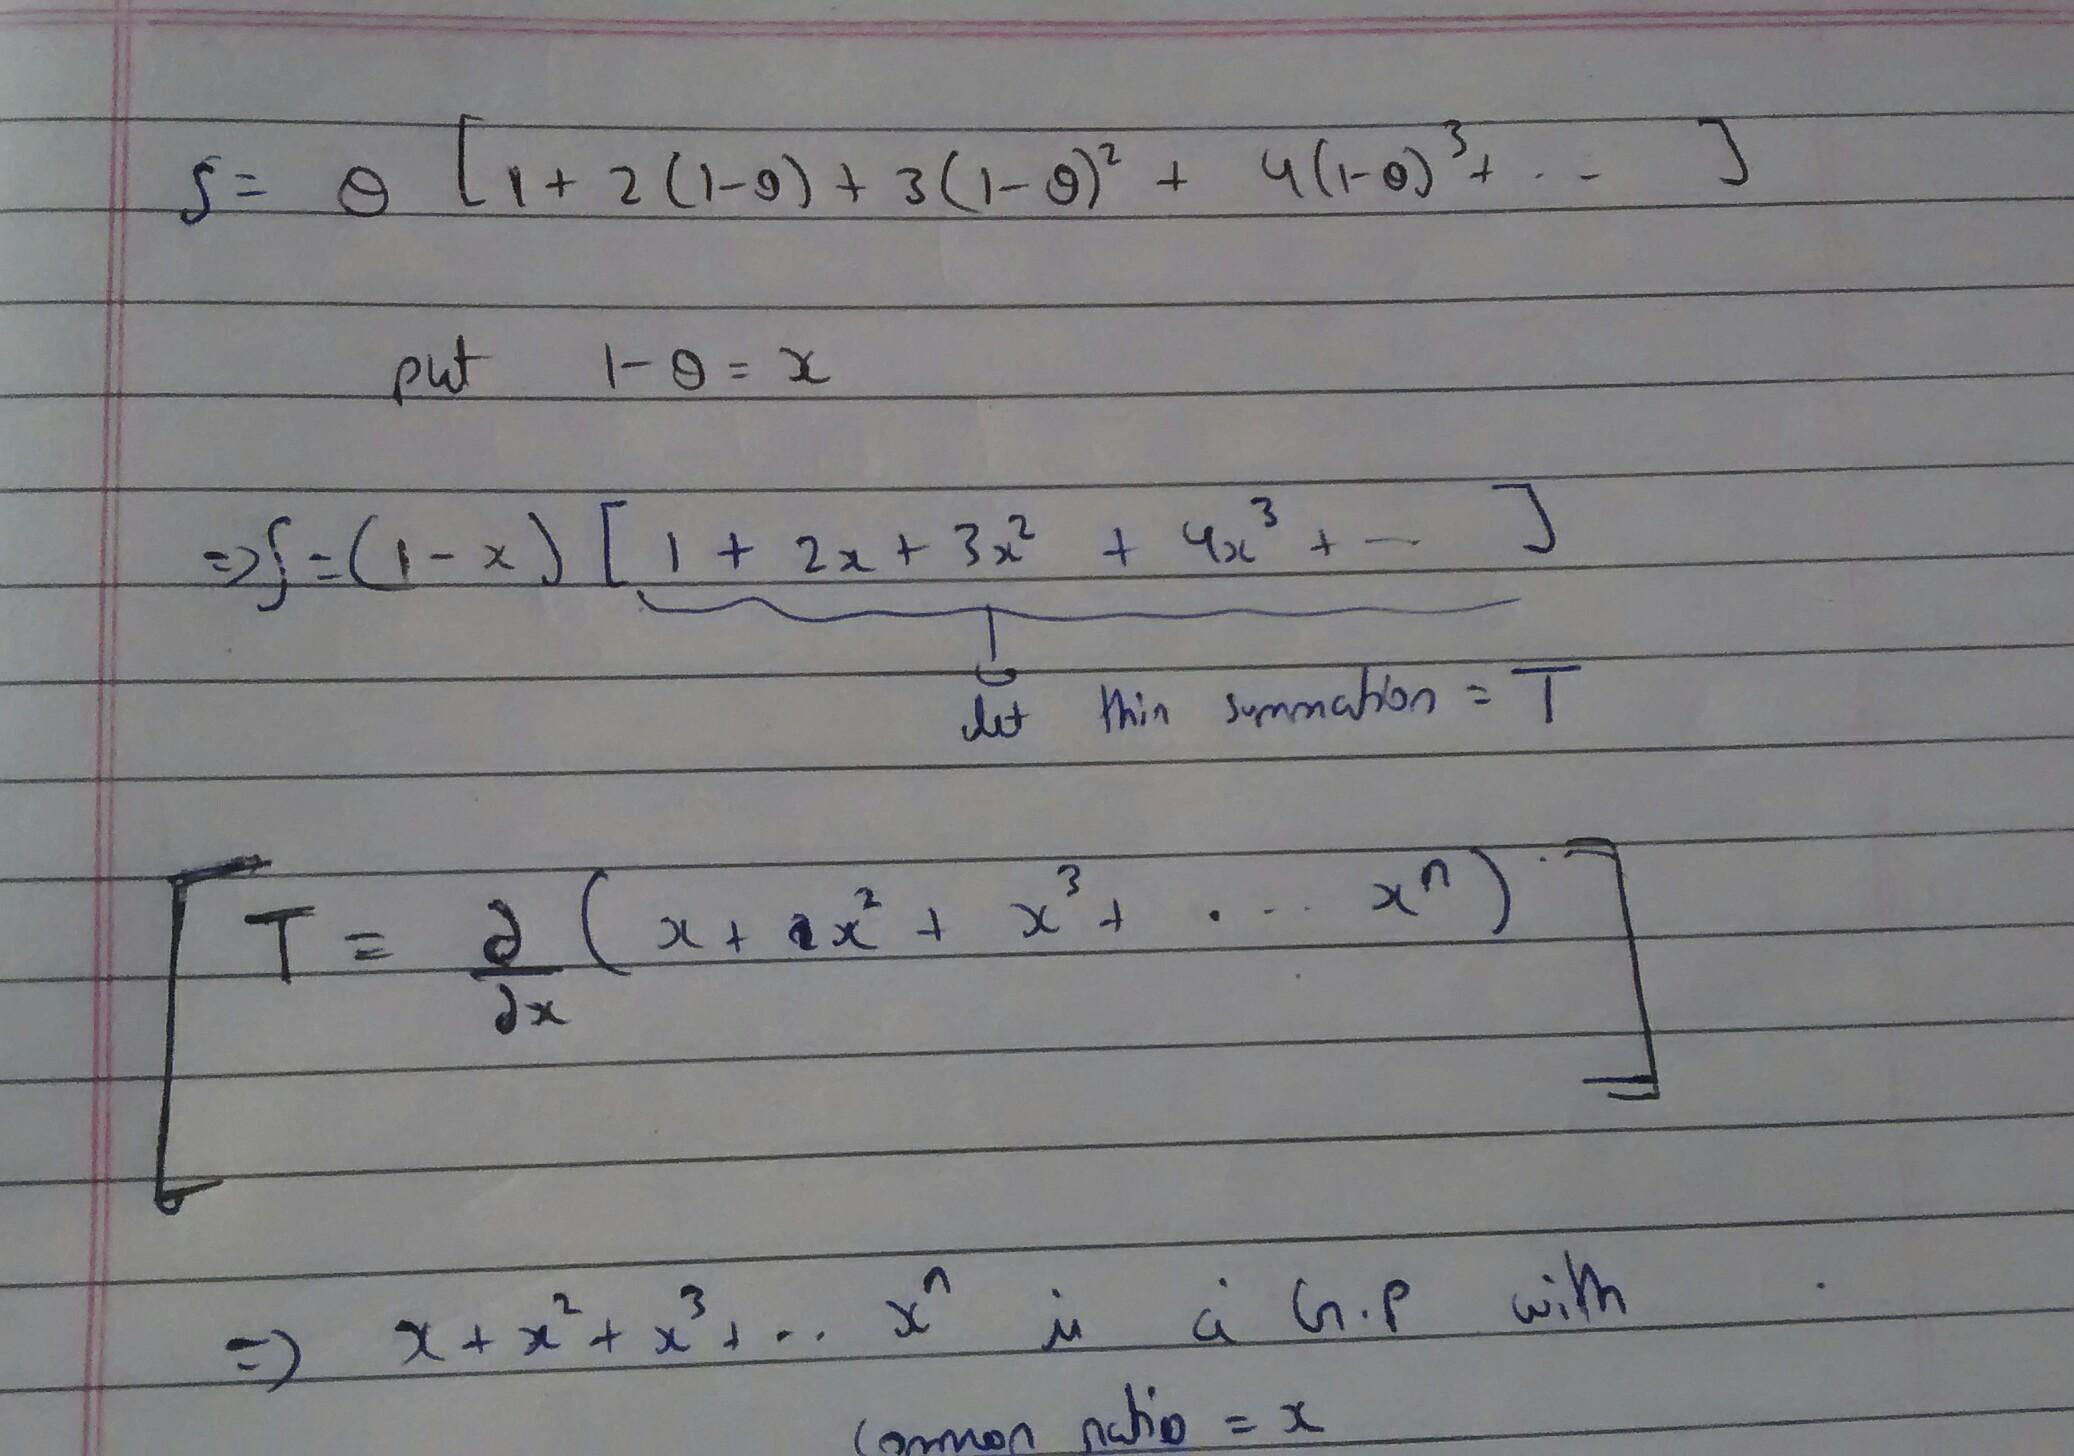 S = θ [ 1 + 2 (1-θ) + 3 (1-θ)² + 4 (1-θ)³ + ... ]
put 1-θ = x
=> S = (1-x) [ 1 + 2x + 3x² + 4x³ + ... ]
let this summation = T
T = ∂/∂x ( x + x² + x³ + .... xⁿ )
=> x + x² + x³ + ... xⁿ is a G.P with
common ratio = x